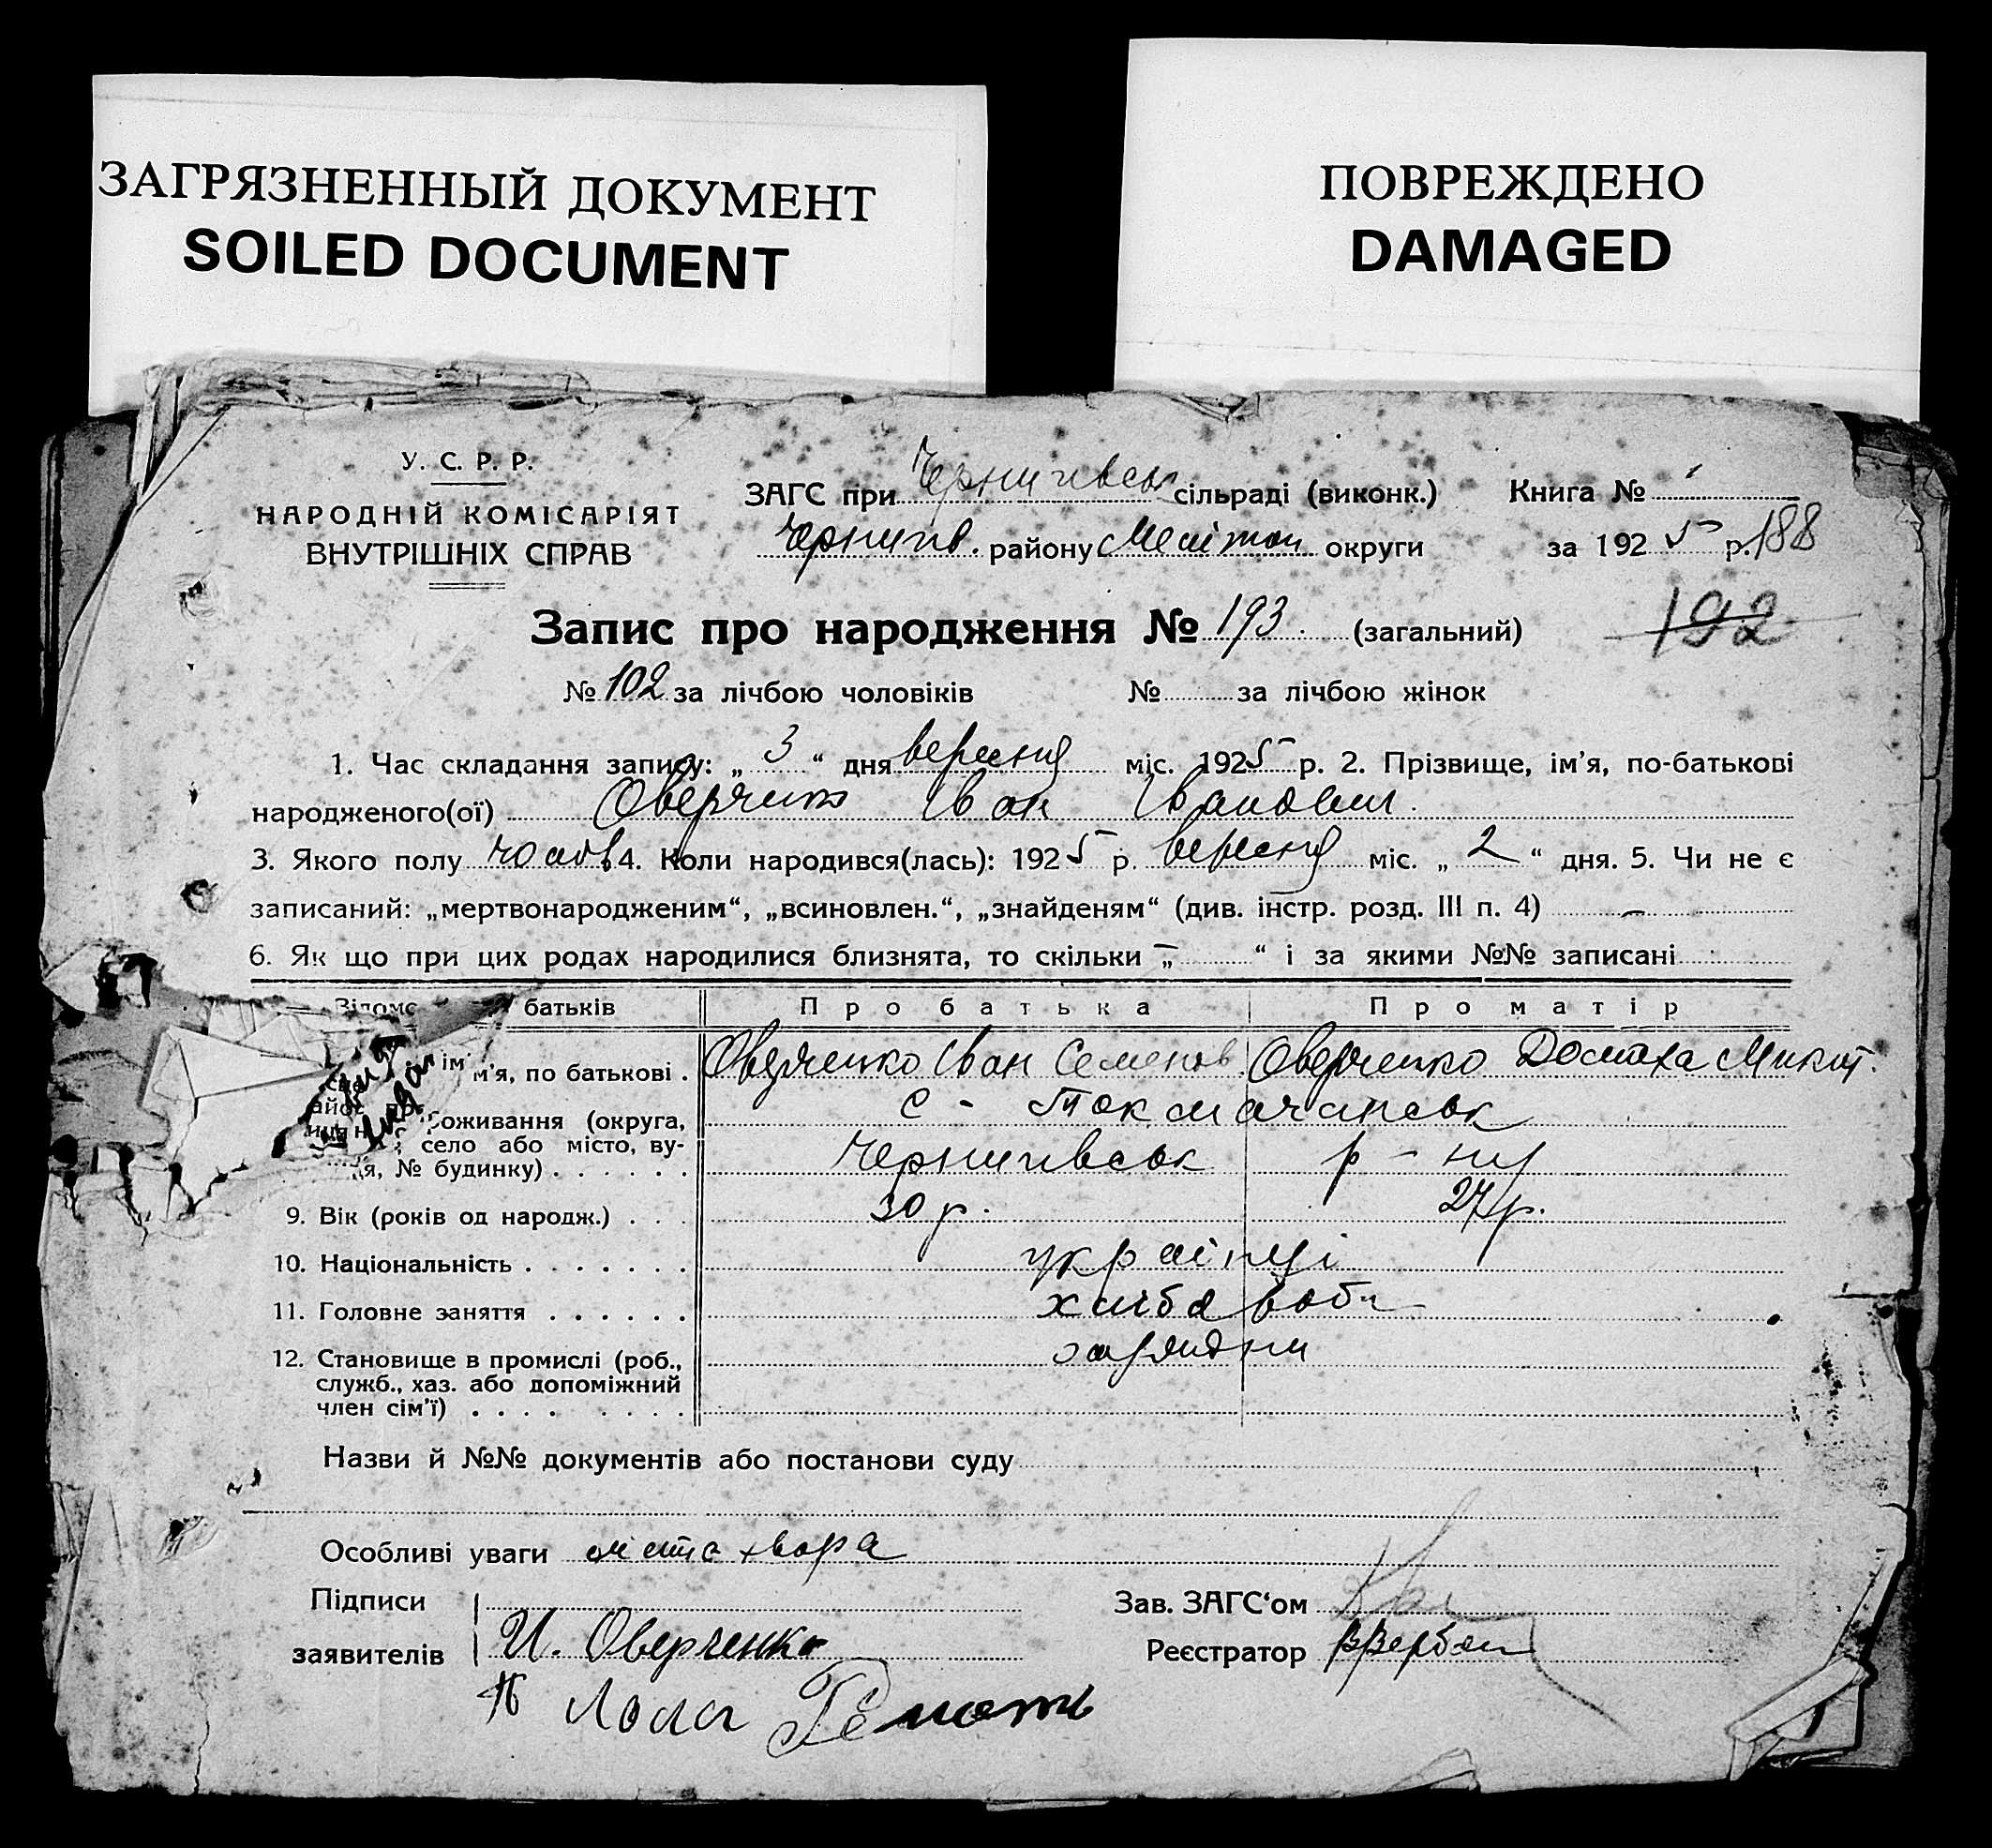 ЗАГРЯЗНЕННЫЙ ДОКУМЕНТ
SOILED DOCUMENT
ПОВРЕЖДЕНО
DAMAGED
У. С. Р. Р.
НАРОДНІЙ КОМІСАРІЯТ
ВНУТРІШНІХ СПРАВ
ЗАГС при Чернигівськ сільраді (виконк.)
Чернигів. району Меліtоп округи
Книга №
за 1925 р. 188
192
Запис про народження № 193. (загальний)
№ 102 за лічбою чоловіків № за лічбою жінок
1. Час складання запису: „ 3 “ дня вересня міс. 1925 р. 2. Прізвище, ім’я, по-батькові
народженого(ої) Оверченко Іван Іванович.
3. Якого полу чолов 4. Коли народився(лась): 1925 р. вересня міс. „ 2 “ дня. 5. Чи не є
записаний: „мертвонародженим“, „всиновлен.“, „знайденям“ (див. інстр. розд. III п. 4) –
6. Як що при цих родах народилися близнята, то скільки „ – “ і за якими №№ записані
батьків Про батька Про матір
ім’я, по батькові . Оверченко Іван Семенов. Оверченко Домаха Микит.
роживання (округа, с - Токмачанськ
село або місто, ву-
№ будинку) . . . . . . Чернигівськ р - ну
9. Вік (років од народж.) . . . 30 р. 27 р.
10. Національність . . . . . . . українці
11. Головне заняття . . . . . . хліборобн
12. Становище в промислі (роб.,
служб., хаз. або допоміжний
член сім’ї) . . . . . . . .
Назви й №№ документів або постанови суду
Особливі уваги хвора
Підписи
заявителів И. Оверченко
Зав. ЗАГС‘ом
Реєстратор